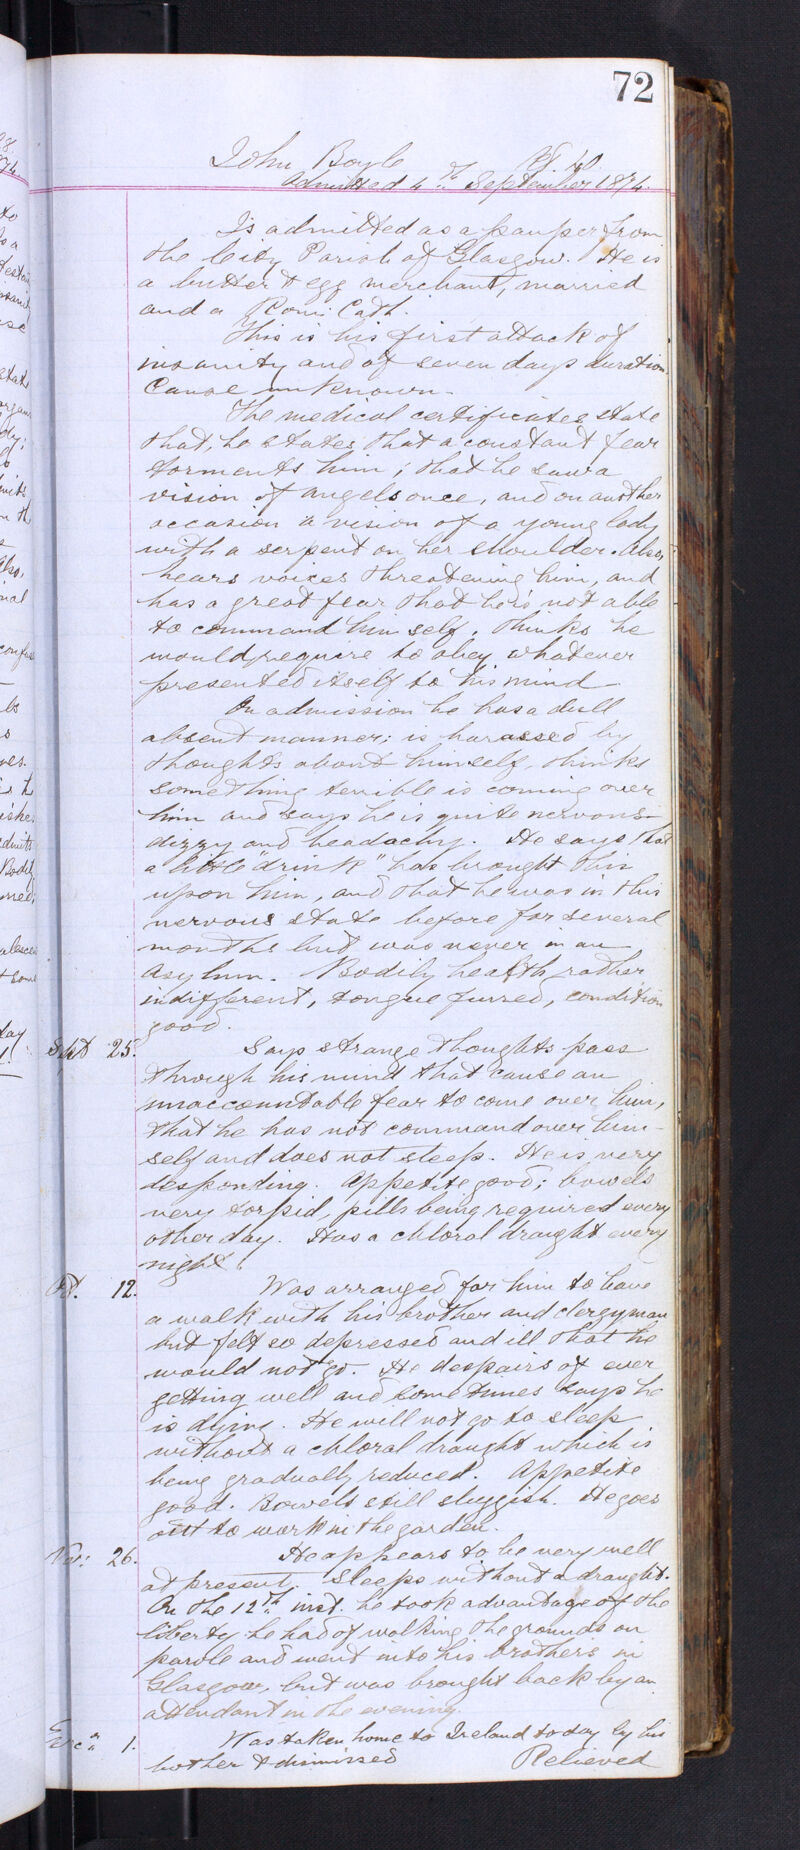 72
John Boyle Æt 40.
Admitted 4th September 1874.
Is admitted as a pauper from
the City Parish of Glasgow. He is
a butter & egg merchant, married
and a Rom: Cath.
This is his first attack of
insanity and of seven days duration
Cause unknown.
The medical certificates state
that, he states that a constant fear
torments him; that he saw a
vision of angels once, and on another
occasion a vision of a young lady
with a serpent on her shoulder. Also,
hears voices threatening him, and
has a great fear that he is not able
to command himself. Thinks he
would require to obey whatever
presented itself to his mind
On admission he has a dull
absent manner; is harassed by
thoughts about himself, thinks
something terrible is coming over
him and says he is quite nervous
dizzy and headachy. He says that
a little "drink" has brought this
upon him, and that he was in this
nervous state before for several
months but was never in an
Asylum. Bodily health rather
indifferent, tongue furred, condition
good.
Sept 25. Says strange thoughts pass
through his mind that cause an
unaccountable fear to come over him,
that he has not command over him-
self and does not sleep. He is very
desponding. Appetite good; bowels
very torpid, pills being required every
other day. Has a chloral draught every
night.
Oct. 12. Was arranged for him to have
a walk with his brother and clergyman
but felt so depressed and ill that he
would not go. He despairs of ever
getting well and sometimes says he
is dying. He will not go to sleep
without a chloral draught which is
being gradually reduced. Appetite
good. Bowels still sluggish. He goes
out to work in the garden.
Nov: 26. He appears to be very well
at present. Sleeps without a draught.
On the 12th inst. he took advantage of the
liberty he had of walking the grounds on
parole and went into his brother's in
Glasgow, but was brought back by an
attendant in the evening.
Decr 1. Was taken home to Ireland today by his
brother & dismissed Relieved